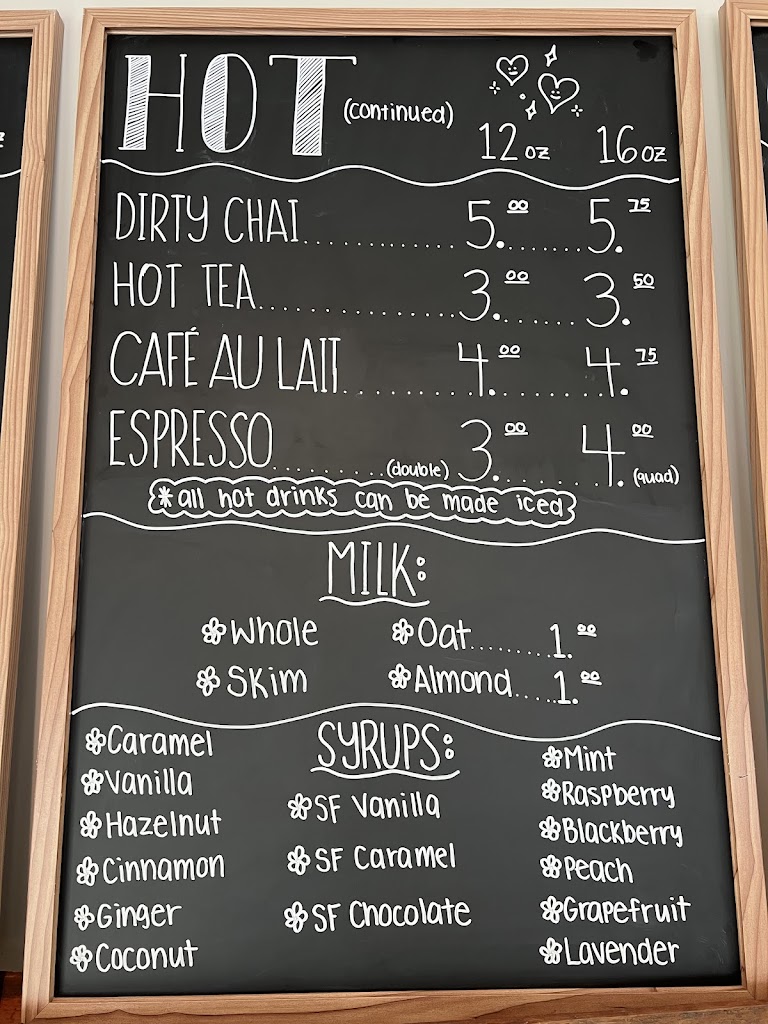 HOT (continued)
12 oz 16 oz
DIRTY CHAI.....................5.00.......5.75
HOT TEA.....................3.00.......3.50
CAFÉ AU LAIT..............4.00.......4.75
ESPRESSO........(double) 3.00.......4.00 (quad)
*all hot drinks can be made iced
MILK:
Whole Oat........1.00
Skim Almond....1.00
SYRUPS:
Caramel
Vanilla
Hazelnut
Cinnamon
Ginger
Coconut
SF Vanilla
SF Caramel
SF Chocolate
Mint
Raspberry
Blackberry
Peach
Grapefruit
Lavender